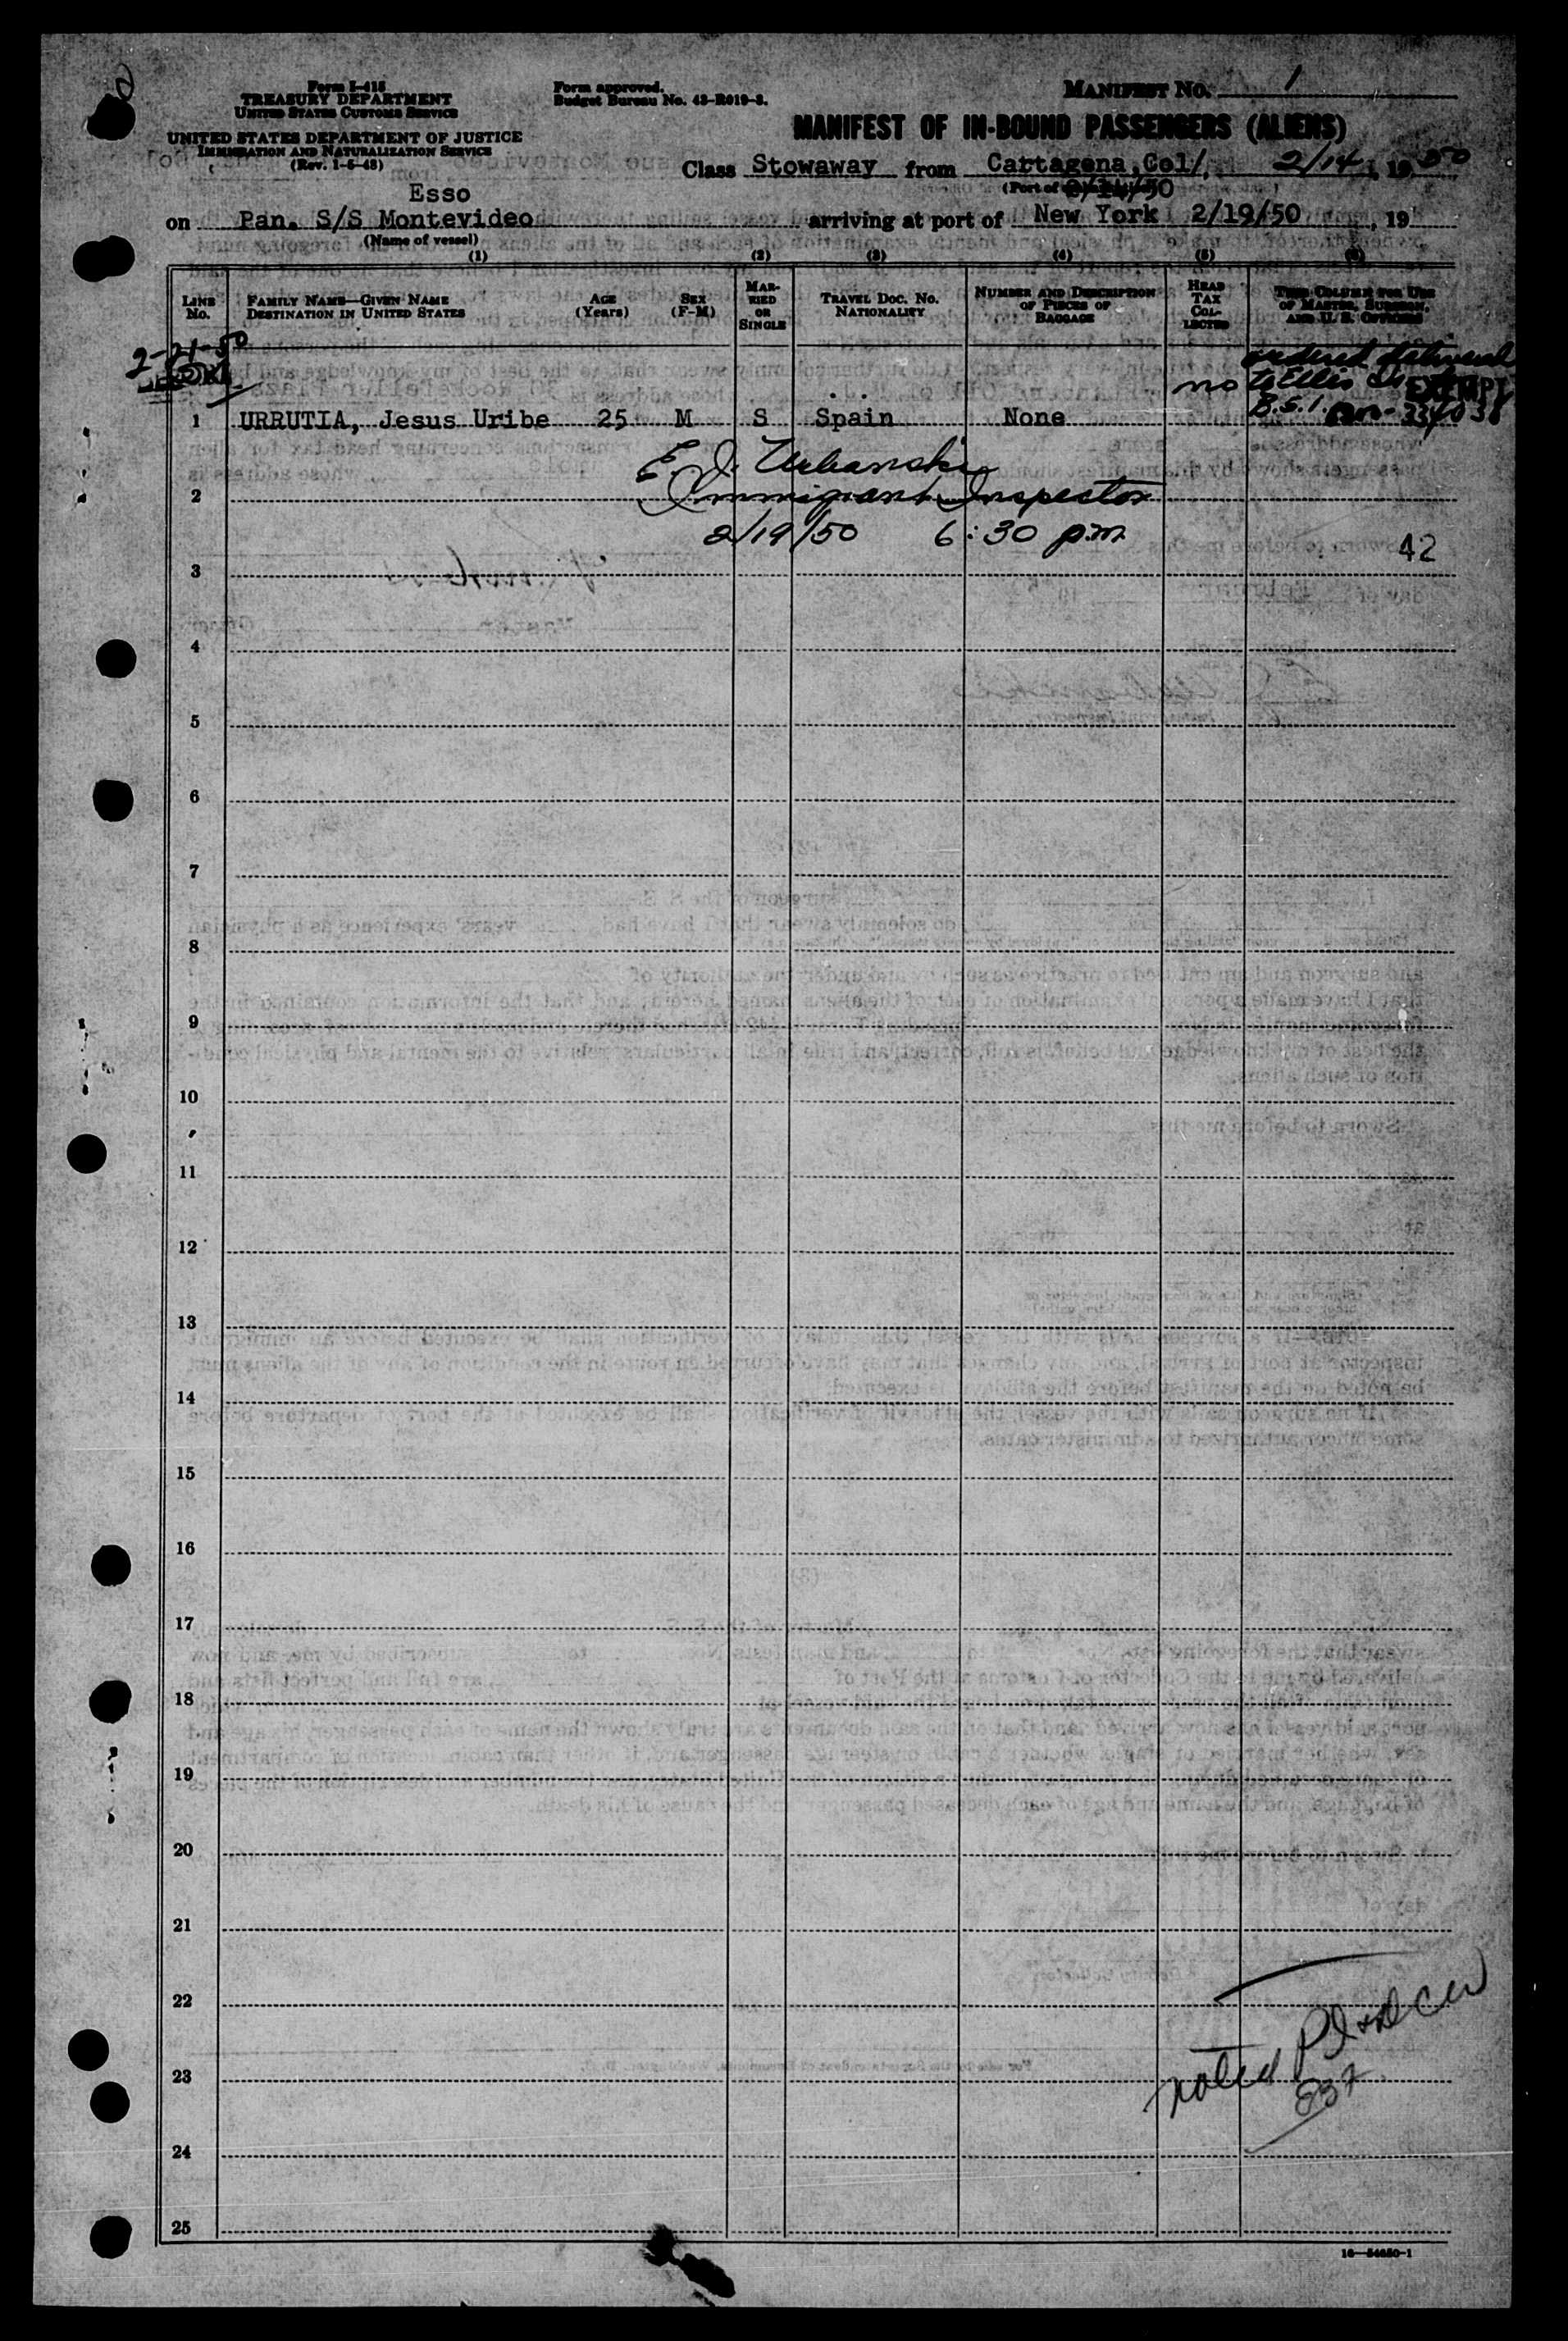 Form I-415
TREASURY DEPARTMENT
UNITED STATES CUSTOMS SERVICE
UNITED STATES DEPARTMENT OF JUSTICE
IMMIGRATION AND NATURALIZATION SERVICE
(Rev. 1-5-48)
Form approved.
Budget Bureau No. 43-R019-3.
MANIFEST NO. 1
MANIFEST OF IN-BOUND PASSENGERS (ALIENS)
Class Stowaway from Cartagena, Col/, 2/14, 1950
(Port of
Esso
on Pan. S/S Montevideo arriving at port of New York 2/19/50, 19
(Name of vessel)
(1) (2) (3) (4) (5) (6)
LINE No.
FAMILY NAME—GIVEN NAME
DESTINATION IN UNITED STATES
AGE (Years)
SEX (F-M)
MARRIED OR SINGLE
TRAVEL DOC. NO.
NATIONALITY
NUMBER AND DESCRIPTION OF PIECES OF BAGGAGE
HEAD TAX COLLECTED
THIS COLUMN FOR USE OF MASTER, SURGEON, AND U. S. OFFICERS
2-21-50
ordered
no to Ellis Is EXEMPT
B.S.I.
1 URRUTIA, Jesus Uribe 25 M S Spain None
E J. Urbanski
2 Immigrant Inspector
2/19/50 6:30 p.m.
42
3
4
5
6
7
8
9
10
11
12
13
14
15
16
17
18
19
20
21
22
noted
23
24
25
16—54650-1